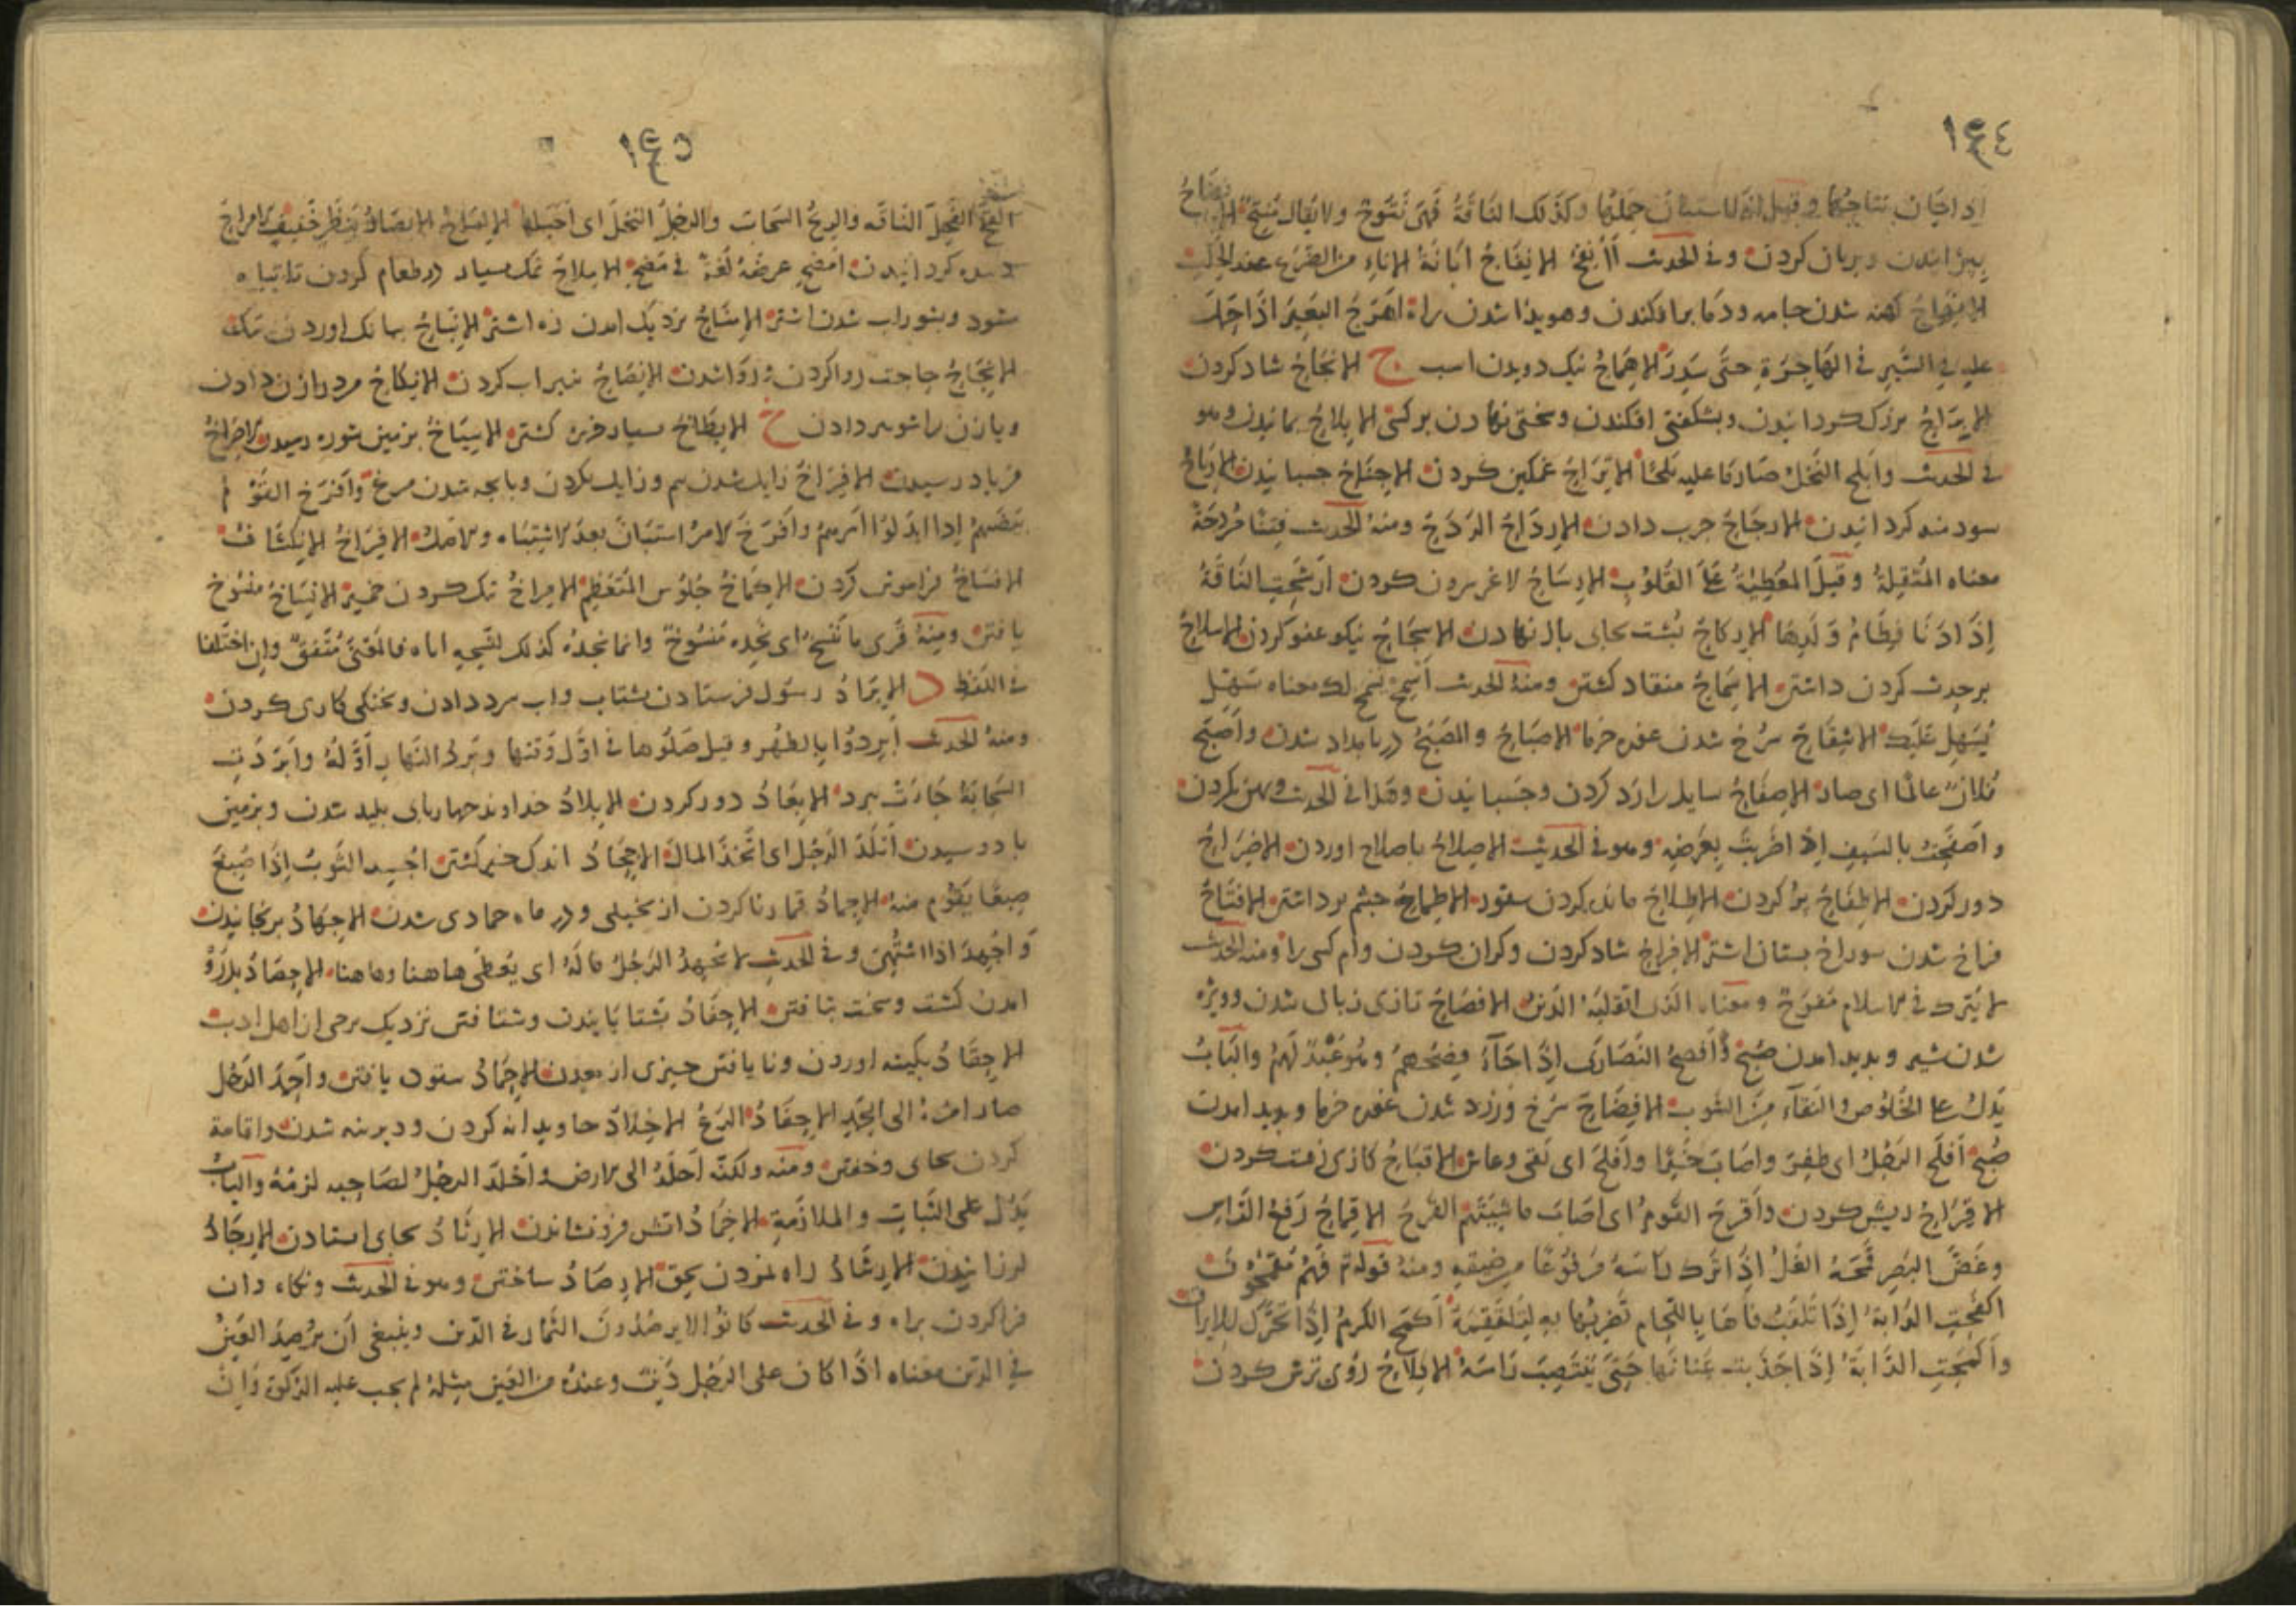 ١٤٤
اذا حان نتاجها وقيل اذا استبان حملها وكذلك الناقة فهى نتوج ولا يقال منتج الانضاج
بپزانيدن وبريان كردن وفى الحديث الانفاج ابانة الاناء من الضرع عند الحلب
الانهاج كهنه شدن جامه ودما برافكندن وهويدا شدن راه اهرج البعير اذا حمل
عليه فى السير فى الهاجرة حتى سدر الاهماج نيك دويدن اسب ح الابجاح شاد كردن
الابراح بزرك كردانيدن وبشكفتى افكندن وسختى نهادن بر كسى الابلاح بمانيدن وهو
فى الحديث وابلح النخل صار ما عليه بلحا الاتراح غمكين كردن الاجناح جسبانيدن الارباح
سودمند كردانيدن الارجاح جرب دادن الارداح الردح ومنه الحديث فتنا مردحة
معناه المثقلة وقيل المغطية على القلوب الارساح لاغر سرون كردن ارشحت الناقة
اذا دنا فطام ولدها الاركاح پشت بجاى باز نهادن الاسجاح نيكو عفو كردن الاسلاح
بر حدث كردن داشتن الاسماح منقاد كشتن ومنه الحديث اسمح يسمح لك معناه سهل
يسهل عليك الاشقاح سرخ شدن غوره خرما الاصباح والمصبح در بامداد شدن واصبح
فلان عالما اى صار الاصفاح سايل را رد كردن وجسبانيدن وهذا فى الحديث وپهن كردن
واصفحت بالسيف اذا ضربت بعرضه وهو فى الحديث الاصلاح باصلاح اوردن الاضراح
دور كردن الاطفاح پر كردن الاطلاح مانده كردن ستور الاطماح چشم برداشتن الافتاح
فراخ شدن سوراخ پستان اشتر الافراح شاد كردن وكران كردن وام كسى را ومنه الحديث
لا يترك فى الاسلام مفرح ومعناه الذى اثقله الدين الافصاح تازى زبان شدن وويژه
شدن شير وپديد امدن صبح وافصح النصارى اذا جاء فصحهم وهو عيد لهم والباب
يدل على الخلوص والنقاء من الشوب الافضاح سرخ وزرد شدن غوره خرما وپديد امدن
صبح افلح الرجل اى ظفر واصاب خيرا وافلح اى بقى وعاش الاقباح كارى زشت كردن
الاقراح ريش كردن واقرح القوم اى اصاب ماشيتهم القرح الاقماح رفع الراس
وغض البصر قمحه الغل اذا ترك راسه مرفوعا من ضيقه ومنه قوله تم فهم مقمحون
اكفحت الدابة اذا تلقيت فاها باللجام تضربها به لتلتقمه اكمح الكرم اذا تحرك للايراق
واكمحت الدابة اذا جذبت عنانها حتى ينتصب راسه الاكلاح روى ترش كردن
١٤٥
القح الفحل الناقه والريح السحاب والرجل النخل اى احبلها الالماح الابصار بنظر خفيف الامراح
كردانيدن امضح عرضه لغة فى مضح الاملاح نمك بسيار در طعام كردن تا تباه
شود وبشور اب شدن اشتر الانتاح نزديك امدن زه اشتر الانباح ببانك اوردن سك
الانجاح حاجت روا كردن وروا شدن الانضاح سيراب كردن الانكاح مرد را زن دادن
وبا زن را شوهر دادن خ الابطاخ بسيار خربزه كشتن الاسباخ بزمين شوره رسيدن الاصراخ
فرياد رسيدن الافراخ زايل شدن بيم وزايل كردن وبا بچه شدن مرغ وافرخ القوم
بيضهم اذا ابدلوا امرهم وافرخ الامر استبان بعد الاشتباه والاصل الافراخ الانكشاف
الانساخ فراموش كردن الاكماخ جلوس المتعظم الامراخ تنك كردن خمير الانساخ منسوخ
يافتن ومنه قرى ما ننسخ اى نجده منسوخا وانما نجده كذلك لنسخه اياه فالمعنى متفق وان اختلفا
فى اللفظ د الابراد رسول فرستادن بشتاب واب سرد دادن وبخنكى كارى كردن
ومنه الحديث ابردوا بالظهر وقيل صلوها فى اول وقتها وبرد النهار اوله وابردت
السحابة جاءت ببرد الابعاد دور كردن الابلاد خداوند چهارپاى بليد شدن وبزمين
با دوسيدن اتلد الرجل اى اتخذ المال الاجحاد اندك خير كشتن اجسد الثوب اذا صبغ
صبغا يقوم منه الاجماد قمار نا كردن از بخيلى ودر ماه جمادى شدن الاجهاد برنجانيدن
واجهد اذا اشتهى وفى الحديث لا يجهد الرجل ماله اى يعطى هاهنا وهاهنا الاحصاد بدرو
امدن كشت وسخت تافتن الاحفاد بشتابانيدن وشتافتن نزديك برخى از اهل ادب
الاحقاد بكينه اوردن ونا يافتن چيزى از معدن الاحماد ستوده يافتن واحمد الرجل
صار امره الى الحمد الاخفاد الاخلاد جاويدانه كردن وديرينه شدن واقامة
كردن بجاى وخفتن ومنه ولكنه اخلد الى الارض واخلد الرجل لصاحبه لزمه والباب
يدل على الثبات والملازمة الاخماد اتش فرو نشاندن الارثاد بجاى استادن الارجاد
لرزانيدن الارشاد راه نمودن بحق الارصاد ساختن وهو فى الحديث ونكاه دان
فرا كردن براه وفى الحديث كانوا لا يرصدون الثمار فى الدين وينبغى ان يرصد العين
فى الدين معناه اذا كان على الرجل دين وعنده من العين مثله لم يجب عليه الزكوة وان